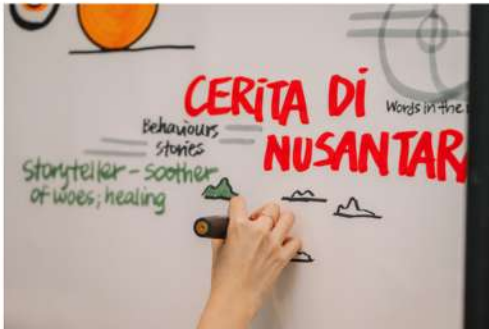 CERITA DI
NUSANTARA
Words in the
Behaviours
stories
Storyteller - soother
of woes; healing